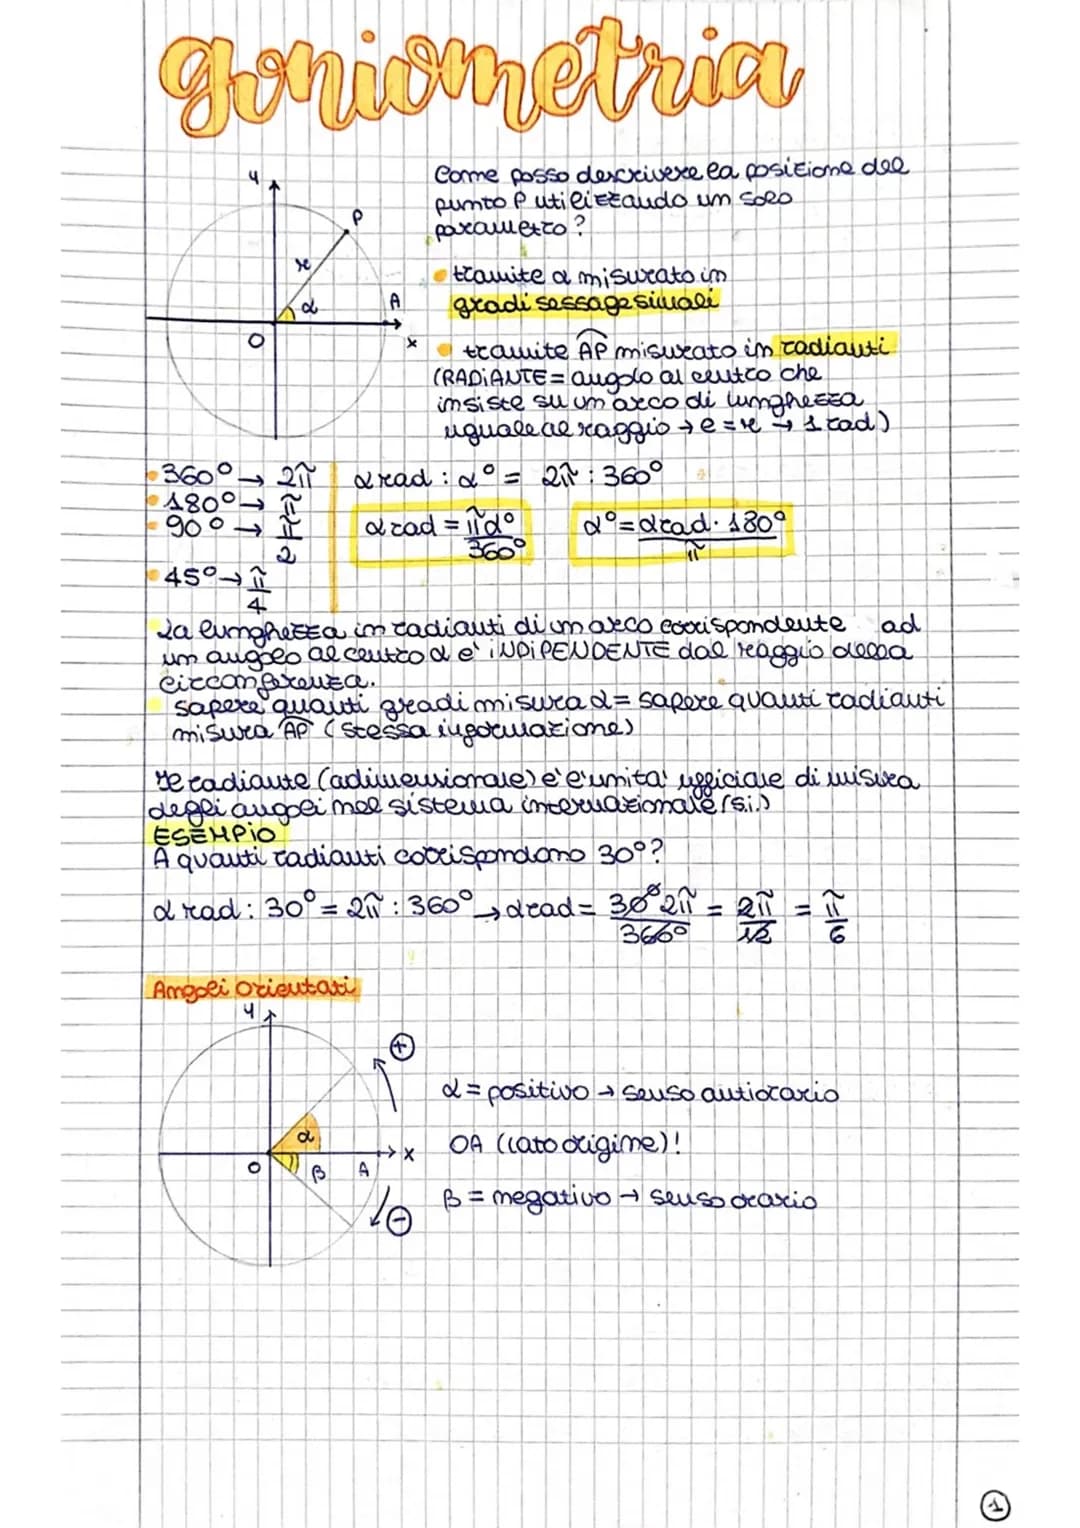 goniometria
Come posso descrivere la posizione del
punto P utilizzando un solo
parametro?
y
P
r
α
A
O
x
• tramite α misurato in
gradi sessagesimali
• tramite AP misurato in radianti
(RADIANTE = angolo al centro che
insiste su un arco di lunghezza
uguale al raggio → l = r → 1 rad)
• 360° → 2π
• 180° → π
• 90° → π/2
• 45° → π/4
α rad : α° = 2π : 360°
α rad = πα°/360°
α° = α rad · 180°/π
La lunghezza in radianti di un arco corrispondente ad
un angolo al centro α e' INDIPENDENTE dal raggio della
circonferenza.
sapere quanti gradi misura α = sapere quanti radianti
misura AP (stessa informazione)
Il radiante (adimensionale) e' l'unita' ufficiale di misura
degli angoli nel sistema internazionale (s.i.)
ESEMPIO
A quanti radianti corrispondono 30°?
α rad : 30° = 2π : 360° → α rad = 30° 2π/360° = 2π/12 = π/6
Angoli orientati
y
+
α
O
β
A
x
-
α = positivo → senso antiorario
OA (lato origine)!
β = negativo → senso orario
1